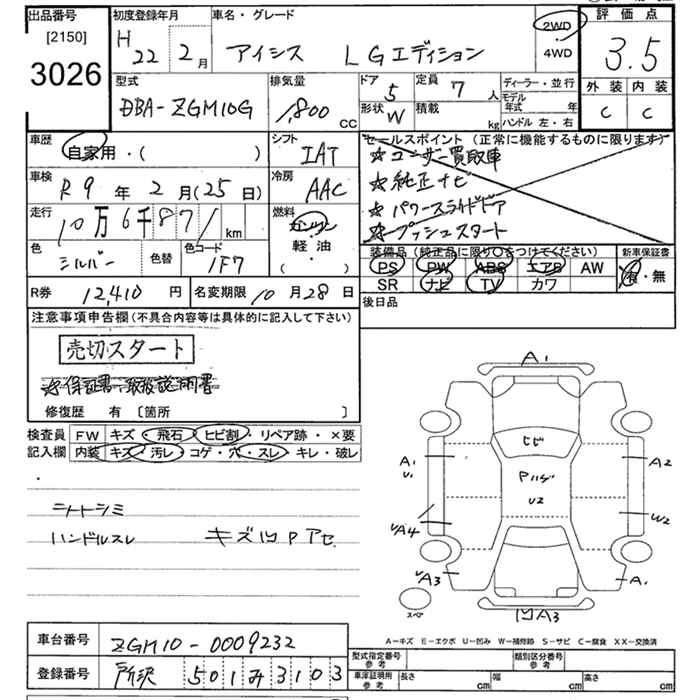 出品番号
[2150]
3026
初度登録年月
H 22 2月
車名・グレード
アイシス LGエディション
2WD
・
4WD
評価点
3.5
外装 内装
C C
型式
DBA-ZGM10G
排気量
1,800 CC
ドア
5
形状 W
定員
7 人
積載 kg
ディーラー・並行
モデル年式 年
ハンドル 左・右
車歴
自家用・( )
シフト
IAT
セールスポイント(正常に機能するものに限ります)
☆ユーザー買取車
☆純正ナビ
☆パワースライドドア
☆プッシュスタート
車検
R9年2月(25日)
冷房
AAC
走行
10万6千871km
燃料
ガソリン
軽油
( ・ )
色
シルバー
色替
色コード
1F7
装備品(純正品に限り○をつけてください)
PS PW ABS エアB AW
SR ナビ TV カワ
新車保証書
有・無
R券 12,410円
名変期限 10月28日
後日品
注意事項申告欄(不具合内容等は具体的に記入して下さい)
売切スタート
☆保証書・取扱説明書
修復歴 有 〔箇所 〕
検査員 FW キズ・飛石・ヒビ割・リペア跡・×要
記入欄 内装 キズ・汚レ・コゲ・穴・スレ・キレ・破レ
シートシミ
ハンドルスレ キズ凹Pアセ
A1
ヒビ
A1
U.
A2
U2
UA4
W2
UA3
A1
スペア
凹A3
A-キズ E-エクボ U-凹み W-補修跡 S-サビ C-腐食 XX-交換済
車台番号 ZGM10-0009232
登録番号 所沢 501み3103
型式指定番号 参考
類別区分番号 参考
車庫証明用 参考 長さ cm 幅 cm 高さ cm